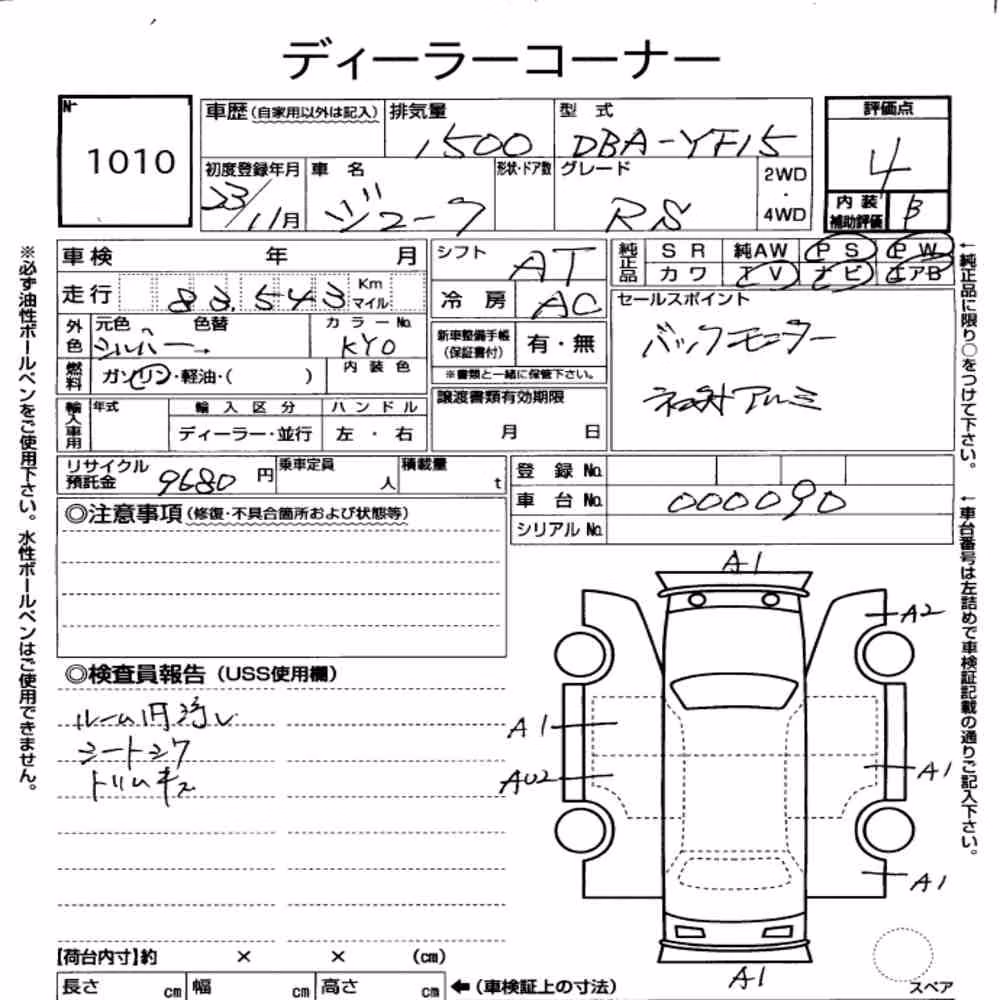 ディーラーコーナー
№
1010
車歴(自家用以外は記入) 排気量 1500 型式 DBA-YF15
評価点 4
初度登録年月 23/11月 車名 ジューク 形状・ドア数 グレード RS 2WD・4WD
内装補助評価 B
車検 年 月
シフト AT
純正品 SR 純AW PS PW
カワ TV ナビ エアB
走行 83,543 Km マイル
冷房 AC
セールスポイント
バックモニター
社外アルミ
外色 元色 シルバー 色替 カラーNo. KY0
新車整備手帳(保証書付) 有・無
※書類と一緒に保管下さい。
燃料 ガソリン・軽油・( ) 内装色
譲渡書類有効期限
月 日
輸入車用 年式 輸入区分 ハンドル
ディーラー・並行 左・右
リサイクル預託金 9680円 乗車定員 人 積載量 t
登録No.
車台No. 000090
シリアルNo.
◎注意事項(修復・不具合箇所および状態等)
◎検査員報告(USS使用欄)
ルーム内汚レ
シートシワ
トリムキズ
A1
A2
A1
AU2
A1
A1
A1
スペア
【荷台内寸】約 × × (cm)
長さ cm 幅 cm 高さ cm ←(車検証上の寸法)
※必ず油性ボールペンをご使用下さい。水性ボールペンはご使用できません。
←純正品に限り○をつけて下さい。
←車台番号は左詰めで車検証記載の通りご記入下さい。